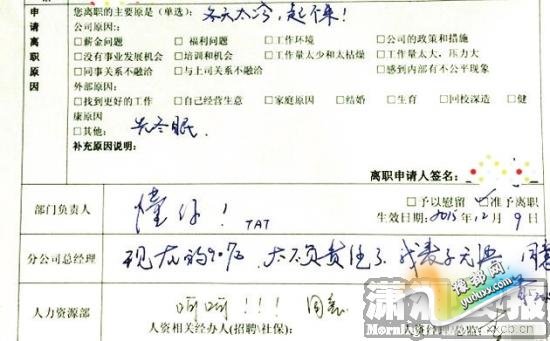 申请离职原因
您离职的主要原是(单选): 冬天太冷,起不来!
公司原因:
□薪金问题 □福利问题 □工作环境 □公司的政策和措施
□没有事业发展机会 □培训和机会 □工作量太少和太枯燥 □工作量太大,压力大
□同事关系不融洽 □与上司关系不融洽 □感到内部有不公平现象
外部原因:
□找到更好的工作 □自己经营生意 □家庭原因 □结婚 □生育 □回校深造 □健
康原因
□其他: 先冬眠.
补充原因说明:
离职申请人签名:
部门负责人 懂你! TAT □予以慰留 □准予离职
生效日期: 2015年12月9日
分公司总经理 现在的90后,太不负责任了,我表示无语 同意
人力资源部 呵呵!!! 同意
人资相关经办人(招聘\社保): 人资经理/总监:
搜都网
yuduxx.com
潇湘晨报
xxcb.cn